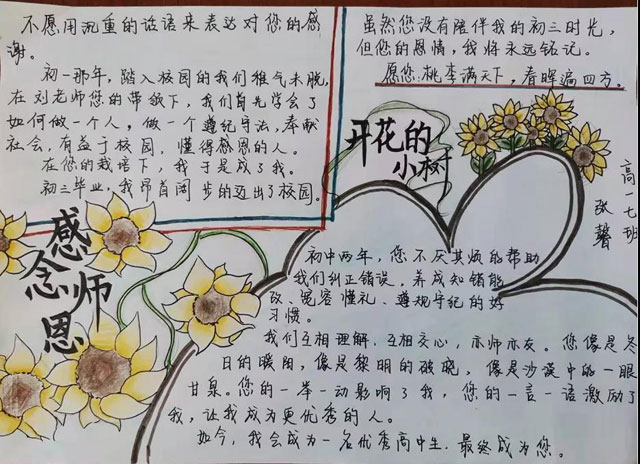 不愿用沉重的话语来表达对您的感
谢。
初一那年，踏入校园的我们稚气未脱，
在刘老师您的带领下，我们首先学会了
如何做一个人，做一个遵纪守法，奉献
社会，有益于校园，懂得感恩的人。
在您的栽培下，我于是成了我。
初三毕业，我昂首阔步的迈出了校园。
虽然您没有陪伴我的初三时光，
但您的恩情，我将永远铭记。
愿您:桃李满天下，春晖遍四方。
开花的
小树
高一七班
感念师恩
初中两年，您不厌其烦的帮助
我们纠正错误，养成知错能
改、宽容懂礼、遵规守纪的好
习惯。
我们互相理解，互相交心，亦师亦友。您像是冬
日的暖阳，像是黎明的破晓，像是沙漠中的一眼
甘泉。您的一举一动影响了我，您的一言一语激励了
我，让我成为更优秀的人。
如今，我会成为一名优秀高中生，最终成为您。